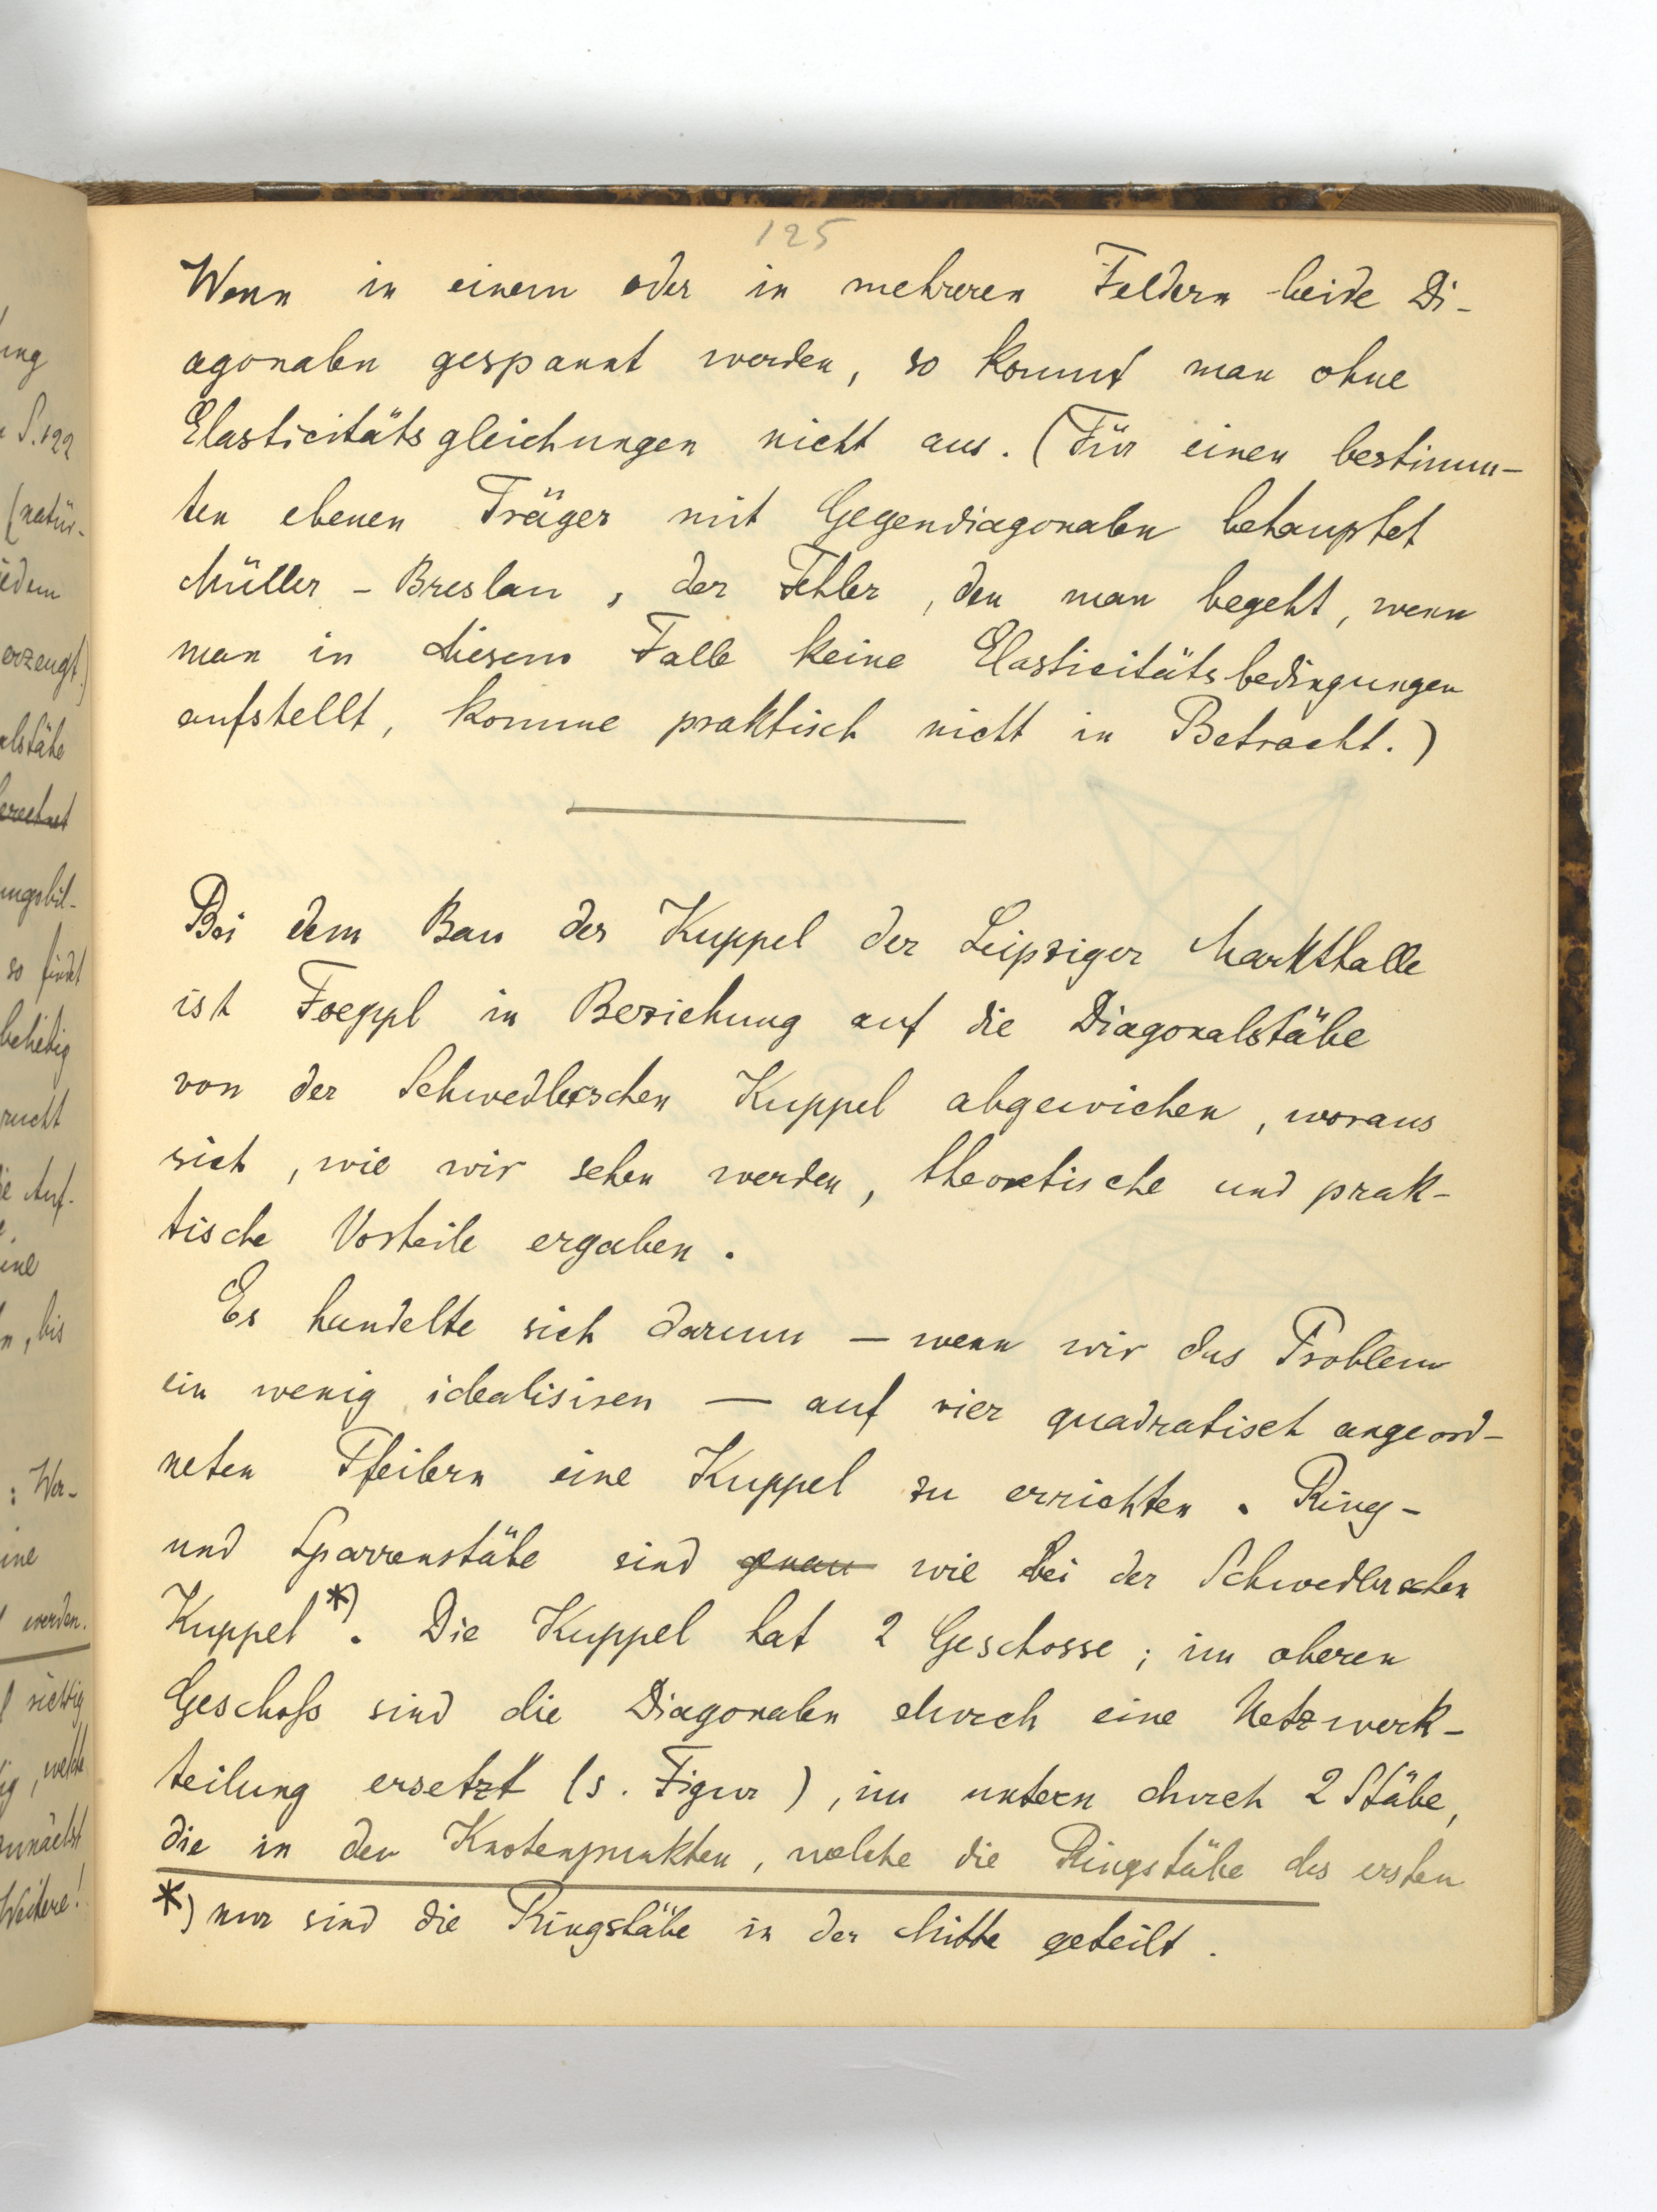 125
Wenn in einem oder in mehreren Feldern beide Di-
agonalen gespannt werden, so kommt man ohne
Elasticitätsgleichungen nicht aus. (Für einen bestimm-
ten ebenen Träger mit Gegendiagonalen behauptet
Müller-Breslau, der Fehler, den man begeht, wenn
man in diesem Falle keine Elasticitätsbedingungen
aufstellt, komme praktisch nicht in Betracht.)
Bei dem Bau der Kuppel der Leipziger Markthalle
ist Foeppl in Beziehung auf die Diagonalstäbe
von der Schwedlerschen Kuppel abgewichen, woraus
sich, wie wir sehen werden, theoretische und prak-
tische Vorteile ergaben.
Es handelte sich darum — wenn wir das Problem
ein wenig idealisiren — auf vier quadratisch angeord-
neten Pfeilern eine Kuppel zu errichten. Ring-
und Sparrenstäbe sind genau wie bei der Schwedlerschen
Kuppel*). Die Kuppel hat 2 Geschosse; im oberen
Geschoß sind die Diagonalen durch eine Netzwerk-
teilung ersetzt (s. Figur), im untern durch 2 Stäbe,
die in den Knotenpunkten, welche die Ringstäbe des ersten
*) nur sind die Ringstäbe in der Mitte geteilt.
ung
S. 122
(natür-
jedem
erzeugt.)
alstäbe
berechnet
ungsbil-
so findet
beliebig
Auf-
eine
, bis
: Wer-
ine
werden.
richtig
, welche
zunächst
Weitere!